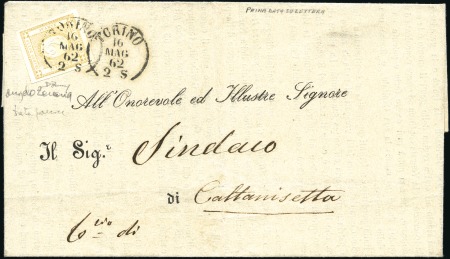 PRIMA DATA SU LETTERA
TORINO
16
MAG
62
2 S
TORINO
16
MAG
62
2 S
All'Onorevole ed Illustre Signore
Il Sig.r Sindaco
di Caltanisetta
di